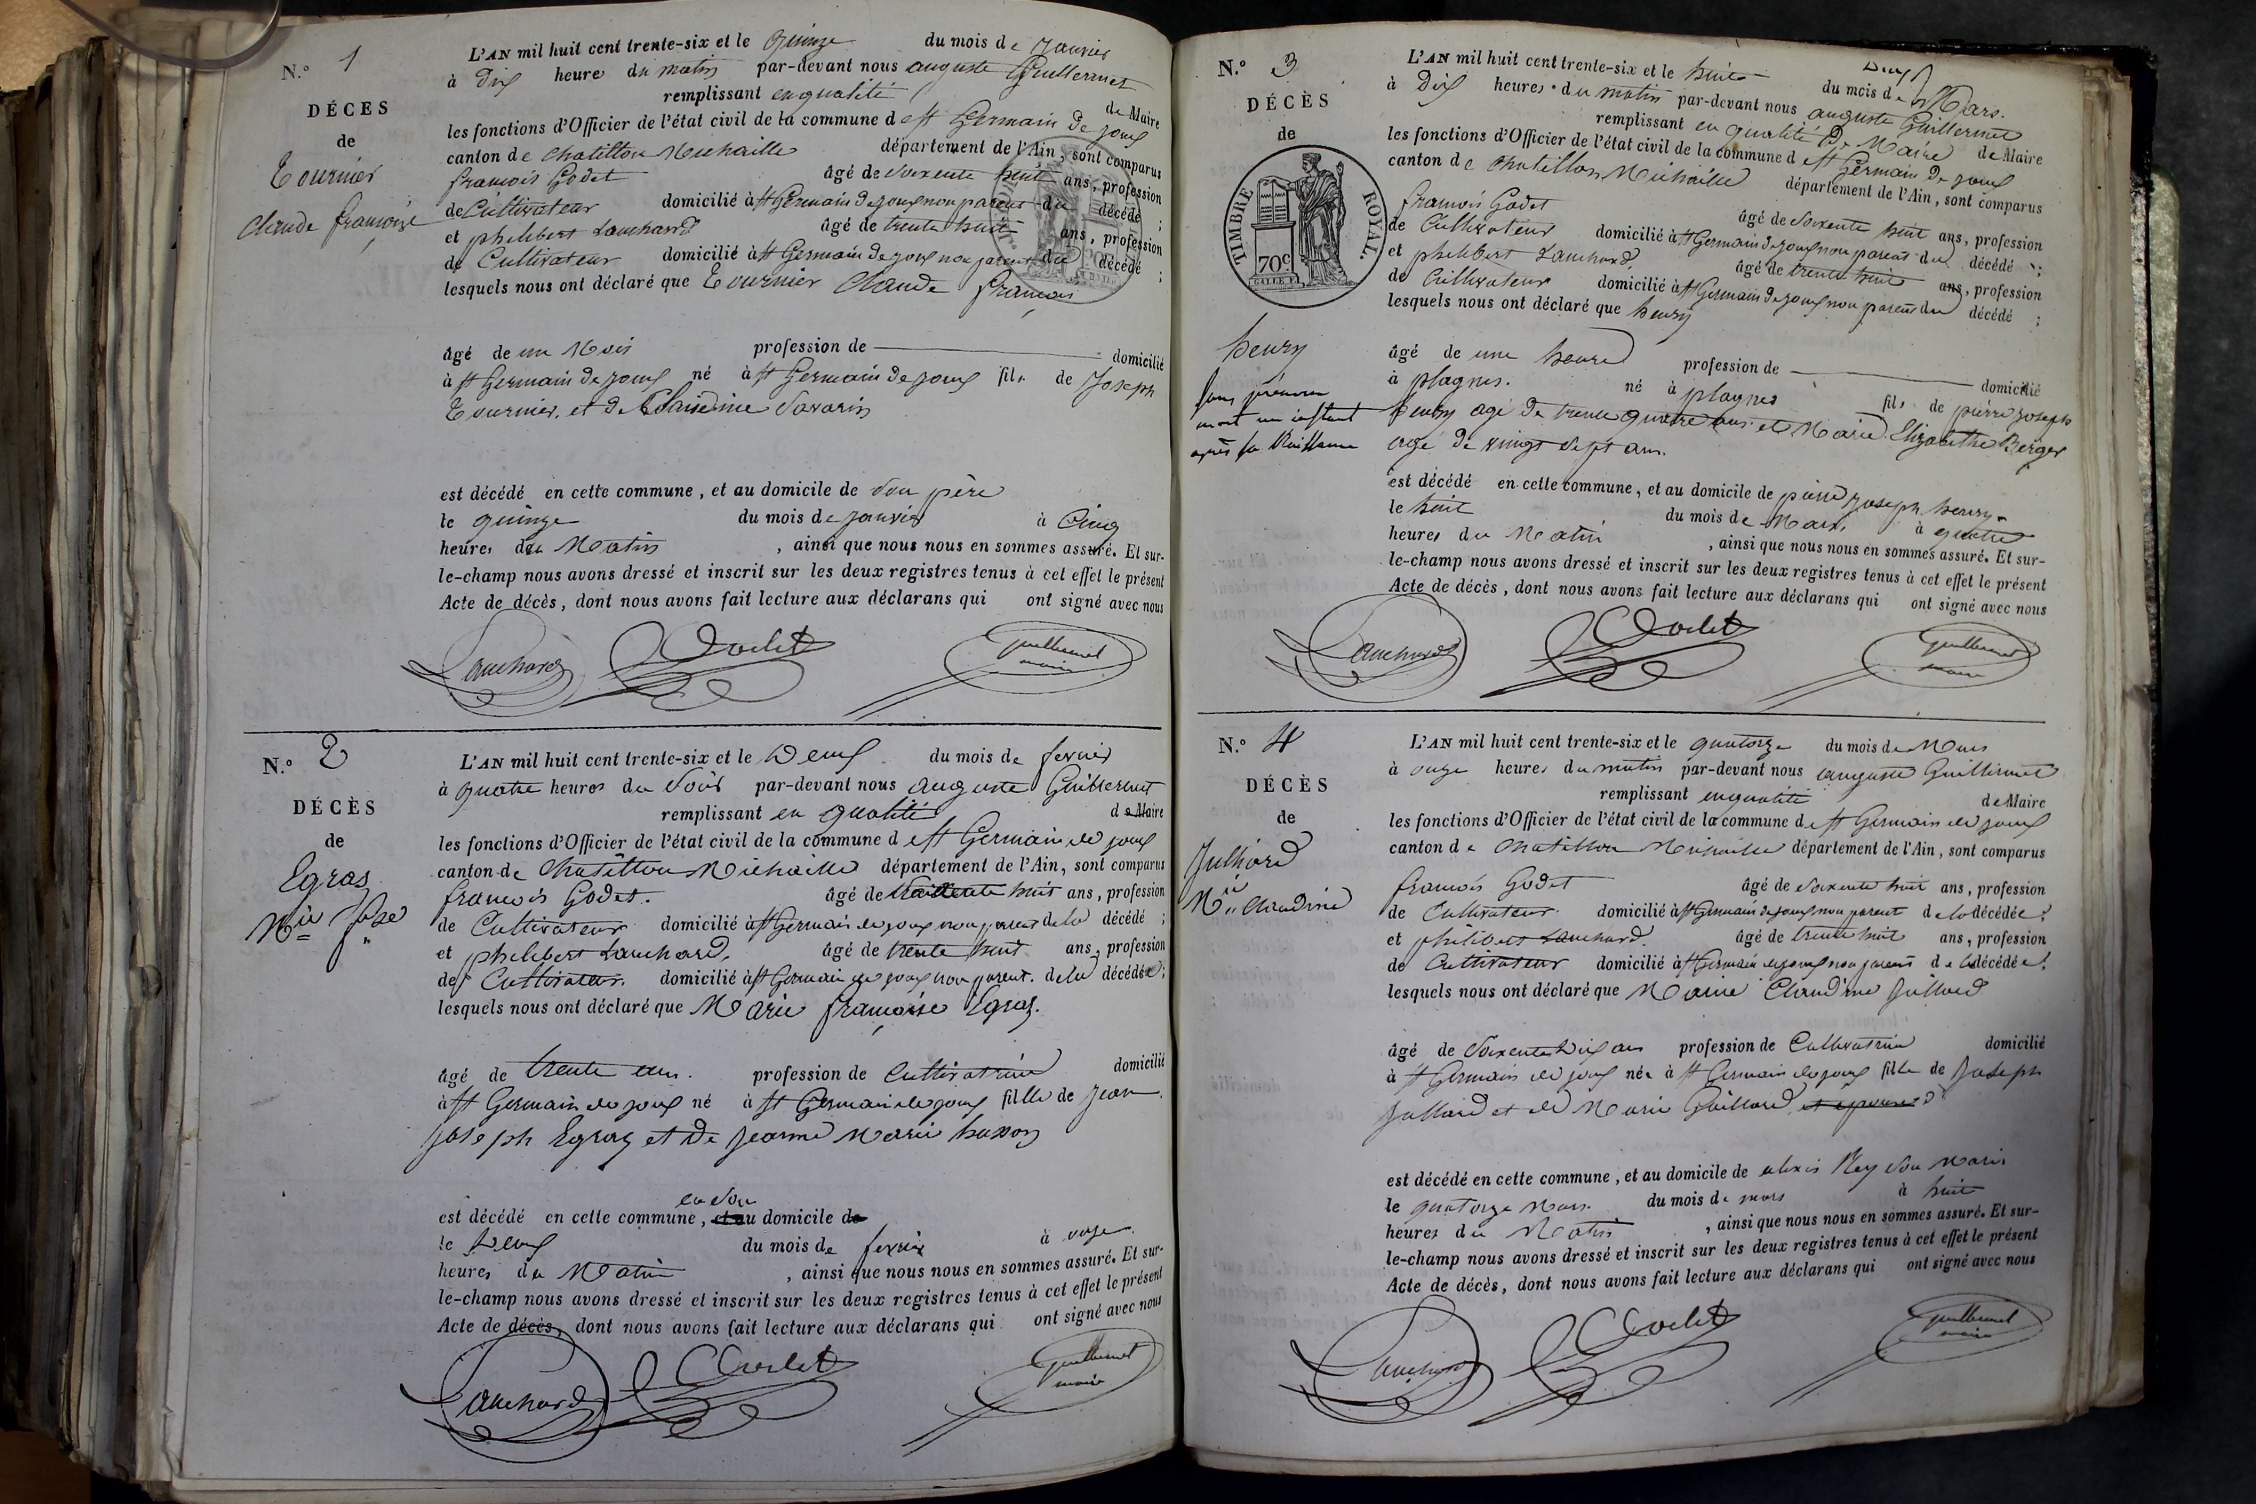 N.º 1
DÉCES
de
Tournier
Claude françoise
L'AN mil huit cent trente-six et le quinze du mois de Janvier
à Dix heures du matin par-devant nous auguste Guillermet
remplissant en qualité de Maire
les fonctions d'Officier de l'état civil de la commune de st Germain De joux
canton de Chatillon Michaille département de l'Ain, sont comparus
francois Godet âgé de Soixente huit ans, profession
de Cultivateur domicilié à st Germain De joux non parent du décédé ;
et philibert Lanchard âgé de trente huit ans, profession
de Cultivateur domicilié à st Germain De joux non parent du décédé ;
lesquels nous ont déclaré que Tournier Claude françois
âgé de un Mois profession de domicilié
à st Germain De joux né à st Germain De joux fils de Joseph
Tournier, et De Claudine Savarin
est décédé en cette commune, et au domicile de Son père
le quinze du mois de janvier à Cinq
heures du Matin, ainsi que nous nous en sommes assuré. Et sur-
le-champ nous avons dressé et inscrit sur les deux registres tenus à cet effet le présent
Acte de décès, dont nous avons fait lecture aux déclarans qui ont signé avec nous
Lanchard Godet Guillermet
maire
N.º 2
DÉCÈS
de
Egras
Mie fse
L'AN mil huit cent trente-six et le Deux du mois de fevrier
à quatre heures du Soir par-devant nous auguste Guillermet
remplissant en qualité de Maire
les fonctions d'Officier de l'état civil de la commune de st Germain de joux
canton de Chatillon Michaille département de l'Ain, sont comparus
francois Godet. âgé de Soixente huit ans, profession
de Cultivateur domicilié à st Germain de joux non parent de la décédé ;
et philibert Lanchard, âgé de trente huit ans, profession
de Cultivateur. domicilié à st Germain de joux non parent. de la décédée ;
lesquels nous ont déclaré que Marie françoise Egraz.
âgé de trente ans. profession de Cultivatrice domicilié
à st Germain de joux né à st Germain de joux fille de Jean
Joseph Egraz et De Jeanne Marie husson
en son
est décédé en cette commune, et au domicile de
le Deux du mois de fevrier à onze
heures du Matin, ainsi que nous nous en sommes assuré. Et sur-
le-champ nous avons dressé et inscrit sur les deux registres tenus à cet effet le présent
Acte de décès, dont nous avons fait lecture aux déclarans qui ont signé avec nous
Lanchard Godet Guillermet
maire
N.º 3
DÉCÈS
de
TIMBRE ROYAL.
70c
henry
sans prénom
mort un instant
après sa Naissance
L'AN mil huit cent trente-six et le huit du mois de Mars.
à Dix heures du matin par-devant nous auguste Guillermet
remplissant en qualité De Maire de Maire
les fonctions d'Officier de l'état civil de la commune de st Germain De joux
canton de Chatillon Michaille département de l'Ain, sont comparus
francois Godet âgé de Soixente huit ans, profession
de Cultivateur domicilié à st Germain De joux non parent du décédé ;
et philibert Lanchard, âgé de trente huit ans, profession
de Cultivateur domicilié à st Germain De joux non parent du décédé ;
lesquels nous ont déclaré que henry
âgé de une heure profession de domicilié
à plagnes. né à plagnes fils de pierre joseph
henry agé De trente quatre ans et Marie Elizabethe Berger
agé de vingt Sept ans.
est décédé en cette commune, et au domicile de pierre Joseph henry.
le huit du mois de Mars à quatre
heures du Matin, ainsi que nous nous en sommes assuré. Et sur-
le-champ nous avons dressé et inscrit sur les deux registres tenus à cet effet le présent
Acte de décès, dont nous avons fait lecture aux déclarans qui ont signé avec nous
Lanchard Godet Guillermet
maire
N.º 4
DÉCÈS
de
Julliard
Mie Claudine
L'AN mil huit cent trente-six et le quatorze du mois de Mars
à onze heures du matin par-devant nous auguste Guillermet
remplissant en qualité de Maire
les fonctions d'Officier de l'état civil de la commune de st Germain de joux
canton de Chatillon Michaille département de l'Ain, sont comparus
francois Godet âgé de Soixente huit ans, profession
de Cultivateur. domicilié à st Germain de joux non parent de la décédée ;
et philibert Lanchard. âgé de trente huit ans, profession
de Cultivateur domicilié à st Germain de joux non parent de la décédée ;
lesquels nous ont déclaré que Marie Claudine Julliard
âgé de Soixente Dix ans profession de Cultivatrice domicilié
à st Germain de joux née à st Germain de joux fille de Joseph
Julliard et de Marie Gaillard et epouse d
est décédé en cette commune, et au domicile de alexis Rey Son Maris
le quatorze Mars. du mois de mars à huit
heures du Matin, ainsi que nous nous en sommes assuré. Et sur-
le-champ nous avons dressé et inscrit sur les deux registres tenus à cet effet le présent
Acte de décès, dont nous avons fait lecture aux déclarans qui ont signé avec nous
Lanchard Godet Guillermet
maire